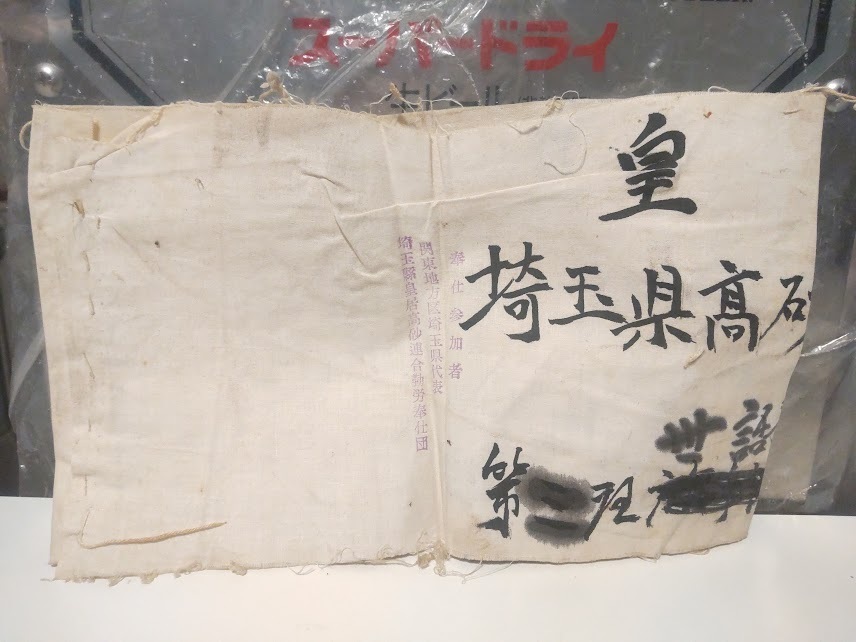 スーパードライ
生ビール
皇
埼玉県髙砂
世話
第三班
奉仕参加者
関東地方区埼玉県代表
埼玉縣皇居高砂連合勤労奉仕団